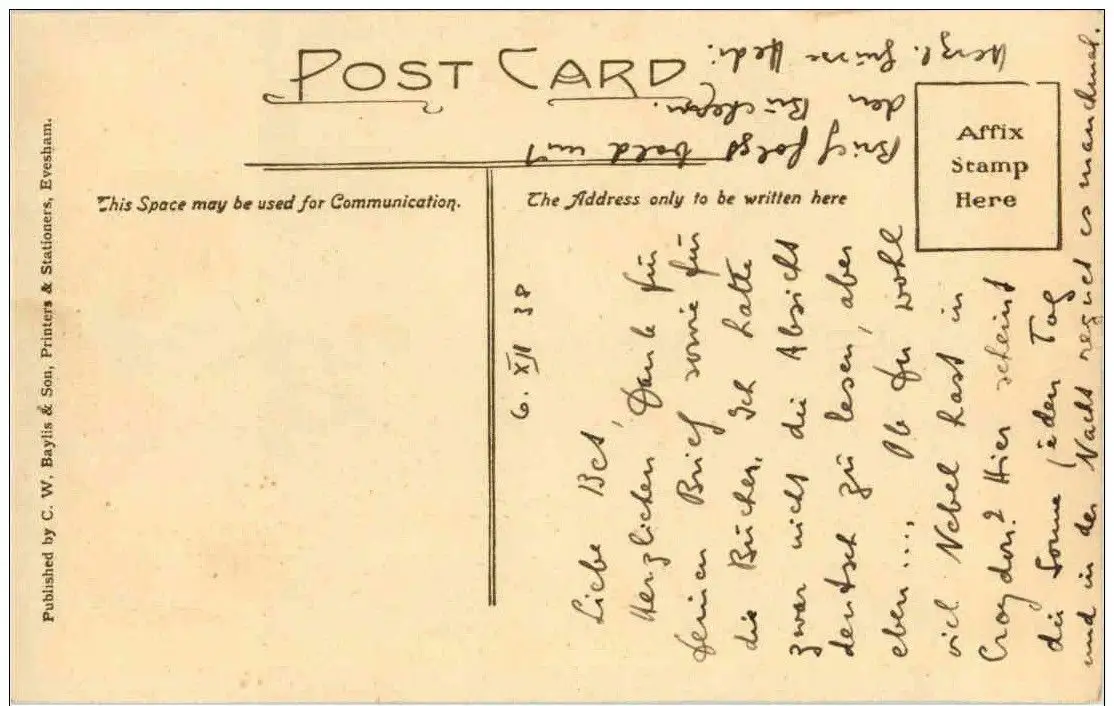 POST CARD
Affix
Stamp
Here
This Space may be used for Communication.
The Address only to be written here
Published by C. W. Baylis & Son, Printers & Stationers, Evesham.
6. XII 38
Liebe Bet,
Herzlichen Dank für
Deinen Brief sowie für
die Bücher. Ich hatte
zwar nicht die Absicht
deutsch zu lesen, aber
eben.... Ob Du wohl
viel Nebel hast in
Croydon? Hier scheint
die Sonne jeden Tag
und in der Nacht regnet es manchmal.
Brief folgt bald mit
den Büchern.
Herzl. Grüsse Hedi.